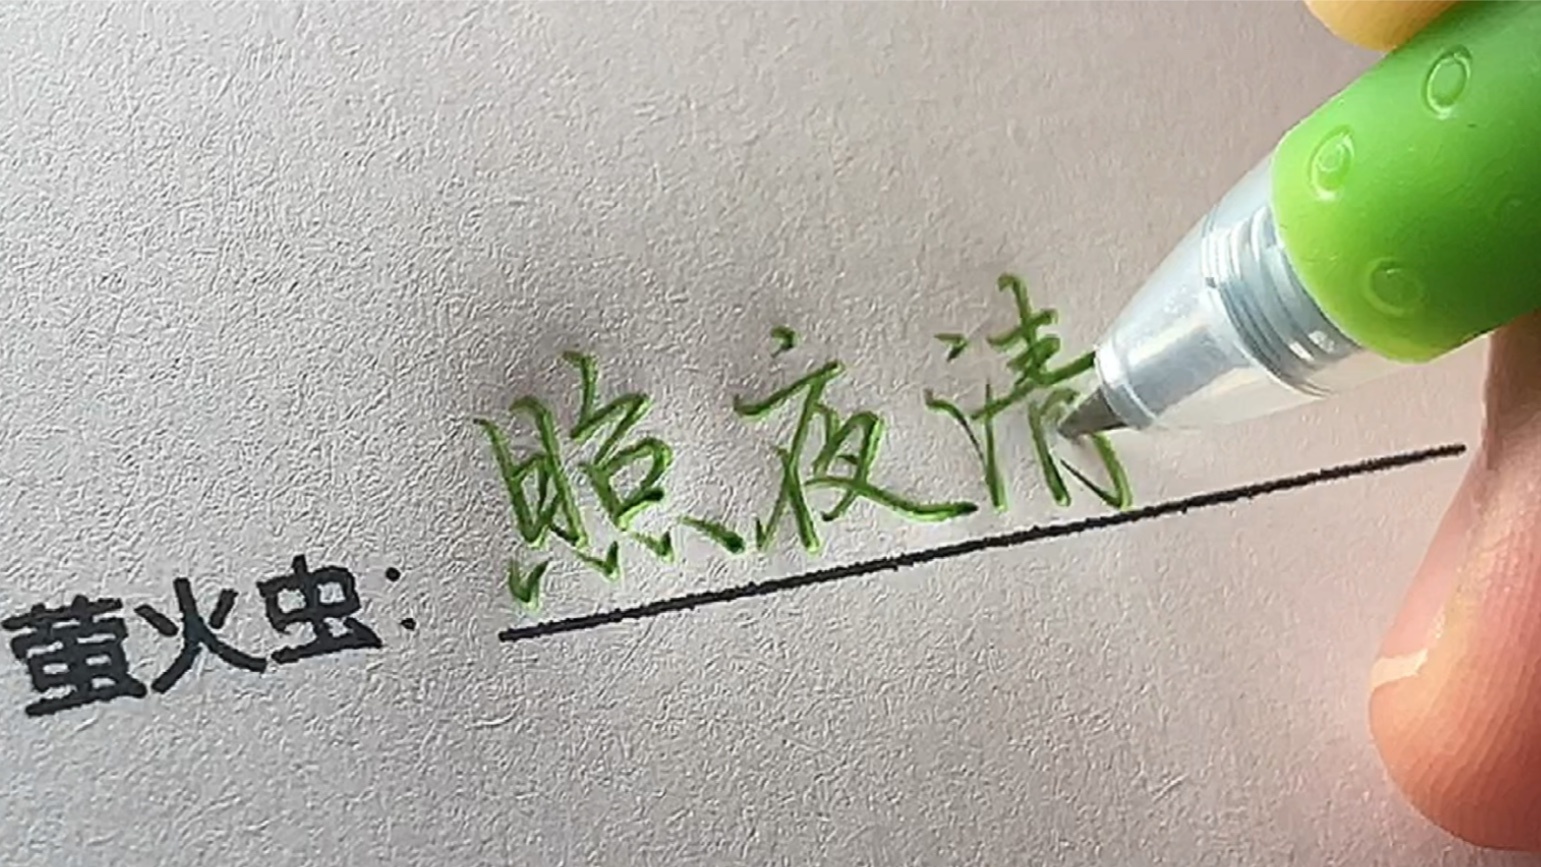 萤火虫：照夜清